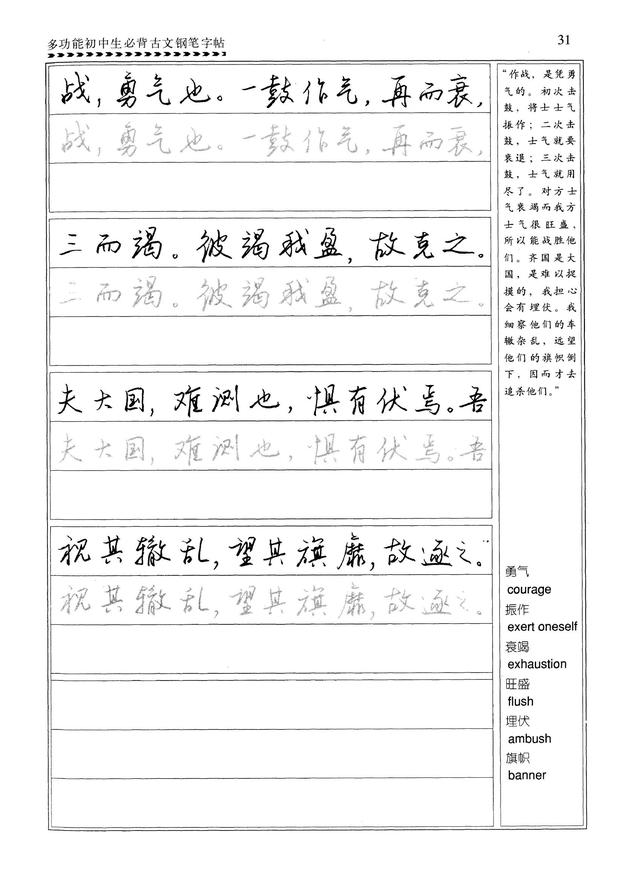 多功能初中生必背古文钢笔字帖
31
战，勇气也。一鼓作气，再而衰，
战，勇气也。一鼓作气，再而衰，
三而竭。彼竭我盈，故克之。
三而竭。彼竭我盈，故克之。
夫大国，难测也，惧有伏焉。吾
夫大国，难测也，惧有伏焉。吾
视其辙乱，望其旗靡，故逐之。
视其辙乱，望其旗靡，故逐之。
“作战，是凭勇
气的。初次击
鼓，将士士气
振作；二次击
鼓，士气就要
衰退；三次击
鼓，士气就用
尽了。对方士
气衰竭而我方
士气很旺盛，
所以能战胜他
们。齐国是大
国，是难以捉
摸的，我担心
会有埋伏。我
细察他们的车
辙杂乱，远望
他们的旗帜倒
下，因而才去
追杀他们。”
勇气
courage
振作
exert oneself
衰竭
exhaustion
旺盛
flush
埋伏
ambush
旗帜
banner